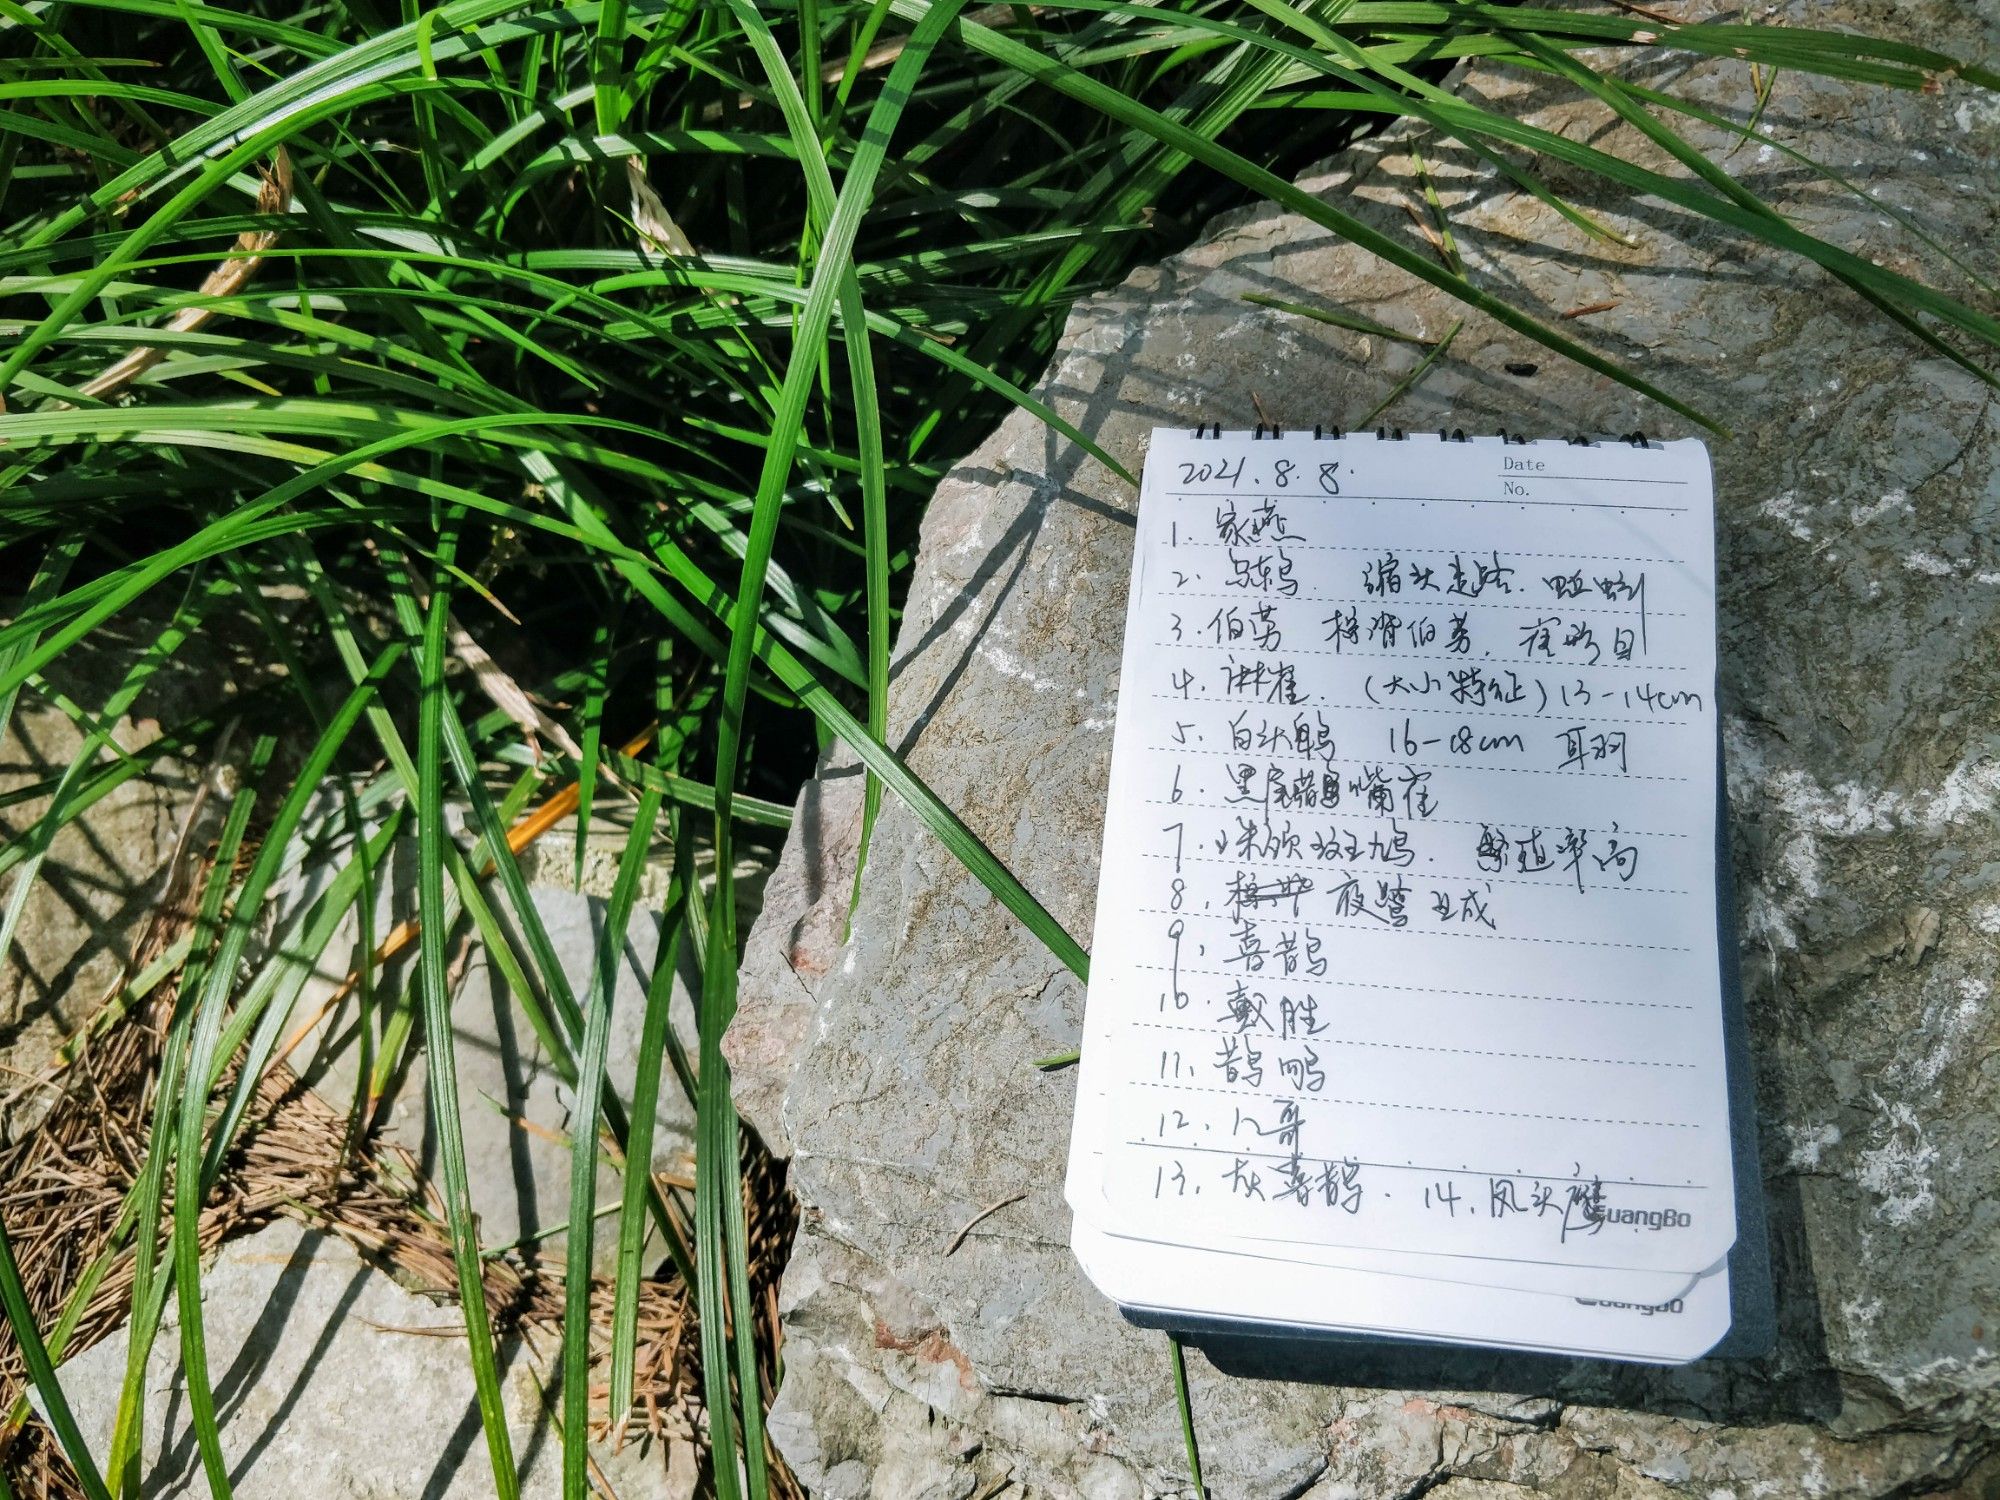 2021.8.8.
Date
No.
1. 家燕
2. 乌鸫. 缩头走路. 蚯蚓
3. 伯劳 棕背伯劳. 雀形目
4. 麻雀. (大小特征) 13-14cm
5. 白头鹎 16-18cm 耳羽
6. 黑尾蜡嘴雀
7. 珠颈斑鸠. 繁殖率高
8. 夜鹭
9. 喜鹊
10. 戴胜
11. 鹊鸲
12. 八哥
13. 灰喜鹊. 14. 凤头
GuangBo
GuangBo